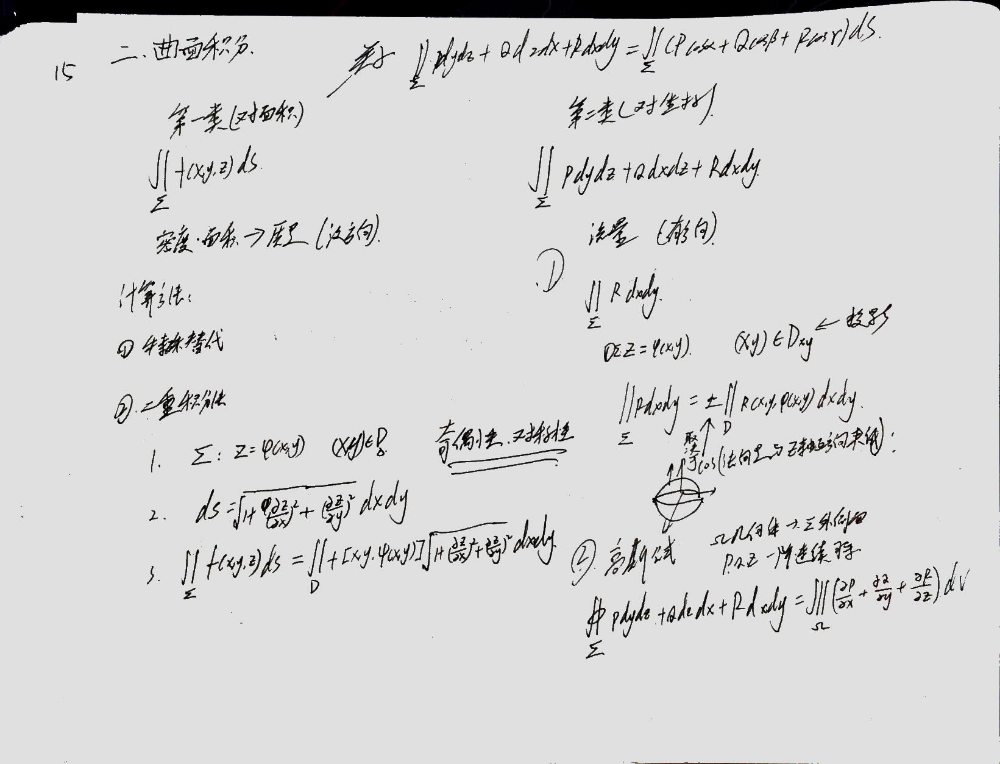 15
二、曲面积分.
∬_Σ Pdydz + Qdzdx + Rdxdy = ∬_Σ (Pcosα + Qcosβ + Rcosγ) ds.
第一类(对面积)
∬_Σ f(x,y,z) ds.
密度·面积 → 质量 (没方向).
计算方法:
① 特殊替代
②.二重积分法
1. Σ: z=φ(x,y) (x,y)∈D. 奇偶性.对称性
2. ds=√(1+(∂z/∂x)²+(∂z/∂y)²) dxdy
3. ∬_Σ f(x,y,z) ds = ∬_D f[x,y,φ(x,y)]√(1+(∂z/∂x)²+(∂z/∂y)²) dxdy.
第二类(对坐标).
∬_Σ Pdydz + Qdxdz + Rdxdy.
流量 (有方向).
① ∬_Σ Rdxdy.
Σ z=φ(x,y). (x,y)∈Dxy ← 投影
∬_Σ Rdxdy = ±∬_D R(x,y,φ(x,y)) dxdy.
取决于cos(法向量与z轴正方向夹角);
② 高斯公式 Ω 几何体 → Σ 外侧
P.Q.Z 一阶连续
∯_Σ Pdydz + Qdzdx + Rdxdy = ∭_Ω (∂P/∂x + ∂Q/∂y + ∂R/∂z) dV